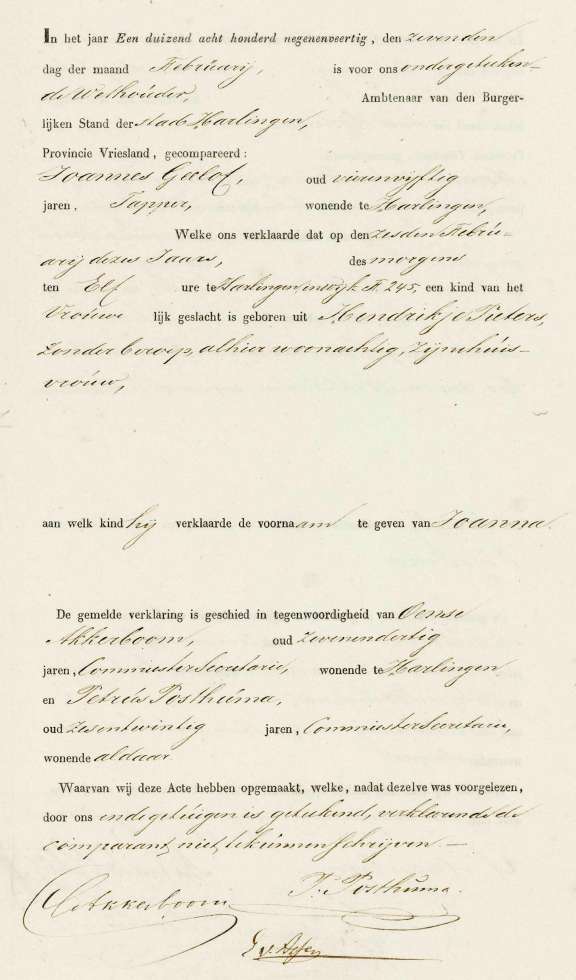 In het jaar Een duizend acht honderd negenenveertig, den zevenden
dag der maand Februarij, is voor ons ondergeteeken-
de Wethouder, Ambtenaar van den Burger-
lijken Stand der stad Harlingen,
Provincie Vriesland, gecompareerd:
Joannes Galof, oud vierenvijftig
jaren, Tapper, wonende te Harlingen,
Welke ons verklaarde dat op den zesden Februa-
arij dezes Jaars, des morgens
ten Elf ure te Harlingen in wijk F. 245, een kind van het
Vrouwe lijk geslacht is geboren uit Hendrikje Pieters,
zonder beroep, alhier woonachtig, zijn huis-
vrouw,
aan welk kind hij verklaarde de voornaam te geven van Joanna.
De gemelde verklaring is geschied in tegenwoordigheid van Oense
Akkerboom, oud zevenendertig
jaren, Commies ter Secretarie, wonende te Harlingen
en Petrus Posthuma,
oud Zesentwintig jaren, Commies ter Secretarie,
wonende aldaar
Waarvan wij deze Acte hebben opgemaakt, welke, nadat dezelve was voorgelezen,
door ons en de getuigen is geteekend, verklarende de
comparant niet te kunnen schrijven. —
P. Posthuma.
O Akkerboom